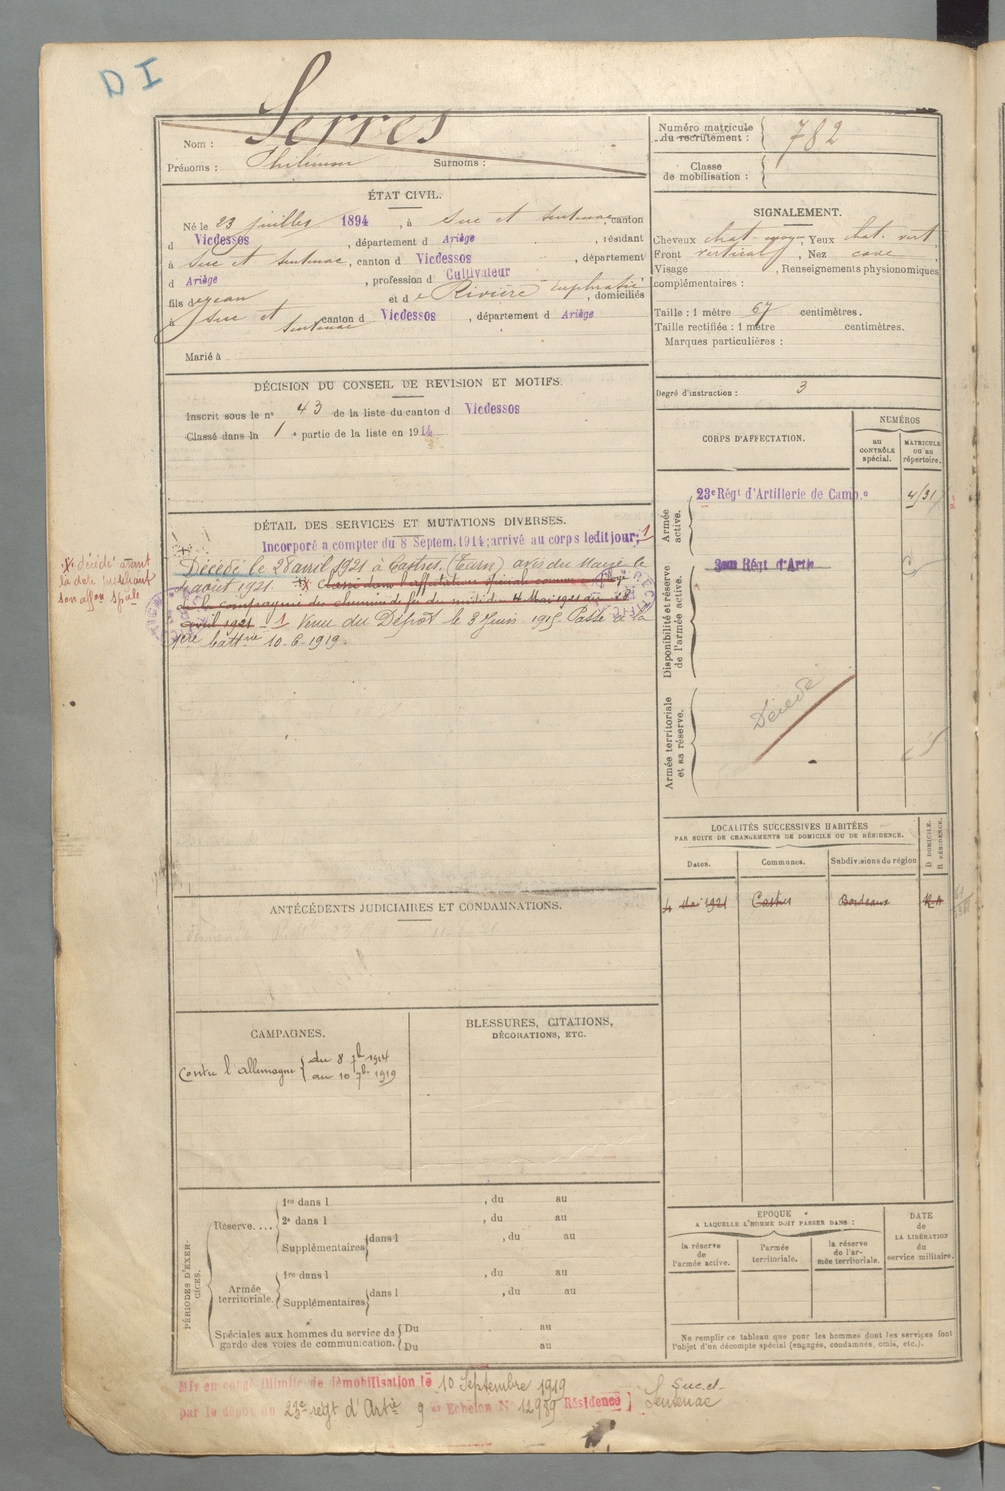 D I
Serres
Nom :
Prénoms : Philemon Surnoms :
Numéro matricule du recrutement : 782
Classe de mobilisation :
ÉTAT CIVIL.
Né le 23 juillet 1894, à Suc et Sentenac, canton
d Vicdessos, département d Ariège, résidant
à Suc et Sentenac, canton d Vicdessos, département
d Ariège, profession d Cultivateur
fils de Jean et de Rivière Euphrasie, domiciliés
à Suc et Sentenac canton d Vicdessos, département d Ariège
Marié à
SIGNALEMENT.
Cheveux chat. moyen, Yeux chat. vert,
Front vertical, Nez cave,
Visage , Renseignements physionomiques
complémentaires :
Taille : 1 mètre 67 centimètres.
Taille rectifiée : 1 mètre centimètres.
Marques particulières :
Degré d'instruction : 3
DÉCISION DU CONSEIL DE REVISION ET MOTIFS.
Inscrit sous le n° 43 de la liste du canton d Vicdessos
Classé dans la 1e partie de la liste en 1914
CORPS D'AFFECTATION.
NUMÉROS
au CONTRÔLE spécial.
MATRICULE ou au répertoire.
Armée active.
23e Régt d'Artillerie de Camp.e
Disponibilité et réserve de l'armée active.
Régt d'Artie
Armée territoriale et sa réserve.
Décédé
DÉTAIL DES SERVICES ET MUTATIONS DIVERSES.
Incorporé a compter du 8 Septem. 1914; arrivé au corps ledit jour; 1
Décédé le 28 avril 1921 à Castres (Tarn) avis du Maire le
août 1921. X Classé dans l'affectation spéciale comme employé
de la compagnie des chemins de fer du midi du 4 Mai 1921 au 28
avril 1921 - 1 Venu du Dépôt le 3 Juin 1915. Passé à la
1ere Battrie 10-6-1919.
X décédé avant
la date justifiant
son affon Spale
LOCALITÉS SUCCESSIVES HABITÉES
PAR SUITE DE CHANGEMENTS DE DOMICILE OU DE RÉSIDENCE.
Dates. Communes. Subdivisions de région D DOMICILE. R RÉSIDENCE.
4 Mai 1921 Castres Bordeaux
ANTÉCÉDENTS JUDICIAIRES ET CONDAMNATIONS.
CAMPAGNES.
Contre l'allemagne { du 8 7b 1914
au 10 7b 1919
BLESSURES, CITATIONS,
DÉCORATIONS, ETC.
PÉRIODES D'EXERCICES.
Réserve....
1re dans l , du au
2e dans l , du au
Supplémentaires dans l , du au
Armée territoriale.
1re dans l , du au
Supplémentaires dans l , du au
Spéciales aux hommes du service de
garde des voies de communication.
Du au
Du au
EPOQUE
A LAQUELLE L'HOMME DOIT PASSER DANS :
la réserve de l'armée active.
l'armée territoriale.
la réserve de l'armée territoriale.
DATE de LA LIBÉRATION du service militaire.
Ne remplir ce tableau que pour les hommes dont les services font
l'objet d'un décompte spécial (engagés, condamnés, omis, etc.).
Mis en congé illimité de démobilisation le 10 Septembre 1919
par le dépôt du 23e regt d'Artie 9 e Echelon N° 12939 Résidence } Suc et
Sentenac